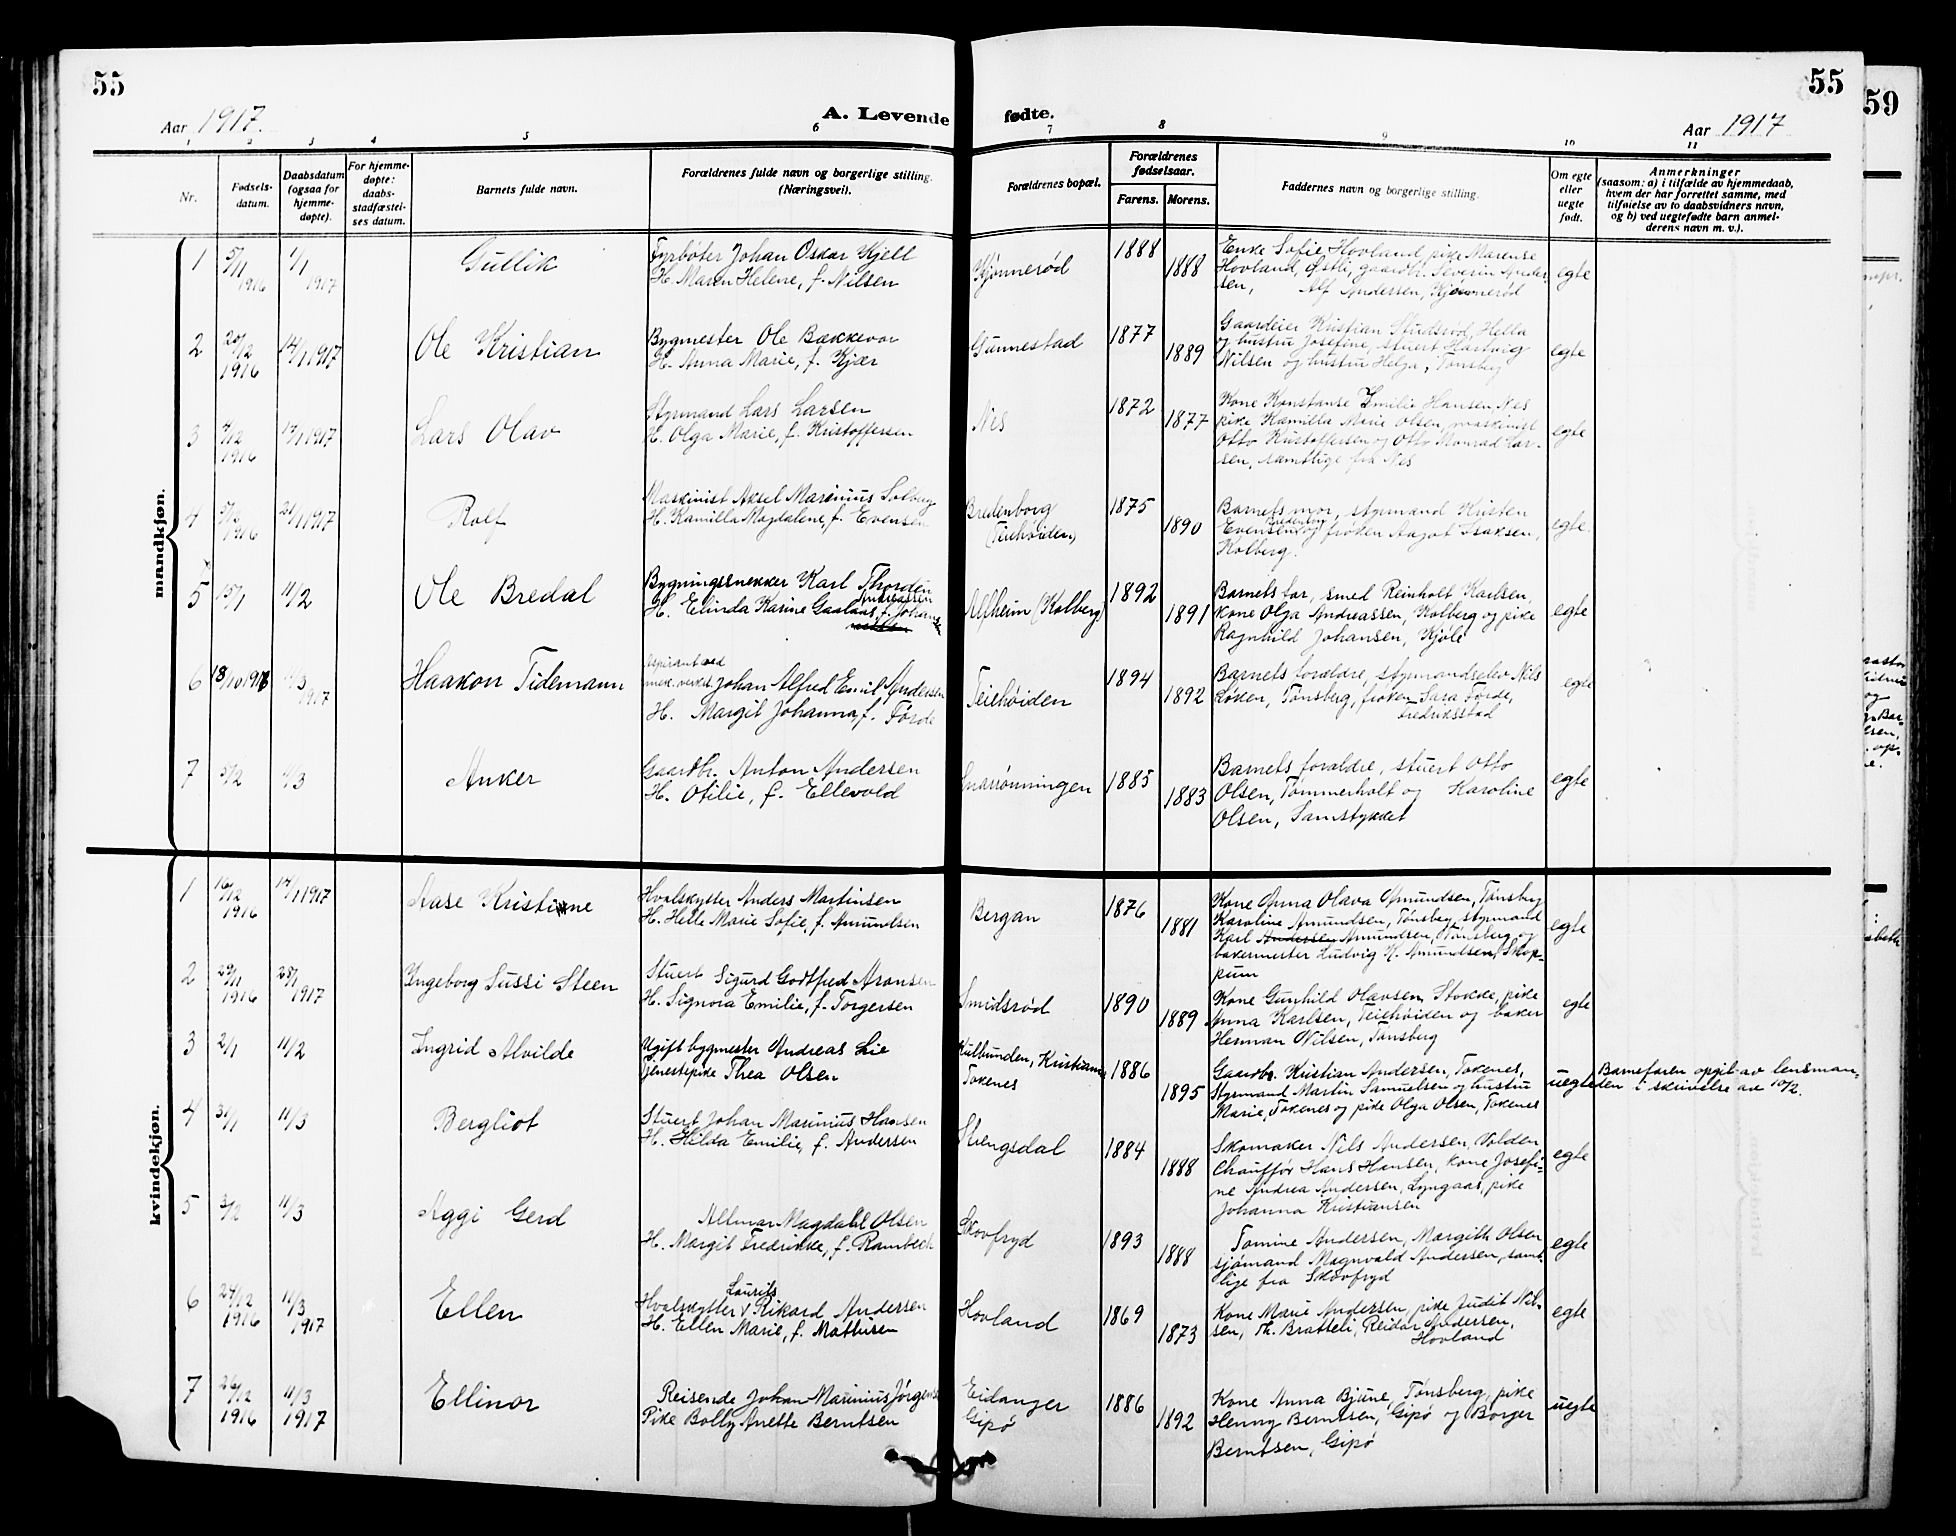 55
Aar 1917.
A. Levende
fødte.
Aar 1917
55
59
1 2 3 4 5 6 7 8 9 10 11
Nr.
Fødsels-
datum.
Daabsdatum
(ogsaa for
hjemme-
døpte).
For hjemme-
døpte:
daabs-
stadfæstel-
ses datum.
Barnets fulde navn.
Forældrenes fulde navn og borgerlige stilling.
(Næringsvei).
Forældrenes bopæl.
Forældrenes
fødselsaar.
Farens. Morens.
Faddernes navn og borgerlige stilling.
Om egte
eller
uegte
født.
Anmerkninger
(saasom: a) i tilfælde av hjemmedaab,
hvem der har forrettet samme, med
tilføielse av to daabsvidners navn,
og b) ved uegtefødte barn anmel-
derens navn m. v.).
mandkjøn.
1 5/11 1916 1/1 1917 Gullik
Fyrbøter Johan Oskar Kjell
H. Maren Helene, f. Nilsen
Kjønnerød 1888 1888
Enke Sofie Hovland, pike Marense
Hovland, Østli, gaardbr. Severin Ander-
sen, Alf Andersen, Kjønnerød
egte
2 20/12 1916 14/1 1917 Ole Kristian
Bygmester Ole Bækkevar
H. Anna Marie, f. Kjær
Gunnestad 1877 1889
Gaardeier Kristian Smidsrød, Hella
og hustru Josefine, stuert Hartvig
Nilsen og hustru Helga, Tønsberg
egte
3 /12 1916 1/1 1917 Lars Olav
Styrmand Lars Larsen
H. Olga Marie, f. Kristoffersen
Nes 1872 1877
Kone Konstanse Emilie Hansen, Nes
pike Kamilla Marie Olsen, maskinist
Otto Kristoffersen og Otto Monrad Lar-
sen, samtlige fra Nes
egte
4 5/12 1916 21/1 1917 Rolf
Maskinist Aksel Marinius Solberg
H. Kamilla Magdalene, f. Evensen
Bredenborg
(Teiehøiden) 1875 1890
Barnets mor, styrmand Kristen
Evensen Bredenborg og frøken Aagot Isaksen,
Kolberg.
egte.
5 15/1 11/2 Ole Bredal
Bygningssnekker Karl Thordin
Andreassen
H. Elinda Karine Gaalaas, f. Johan
Alfheim (Kolberg) 1892 1891
Barnets far, smed Reinholt Karlsen,
kone Olga Andreassen, Kolberg og pike
Ragnhild Johansen, Kjøle
egte
6 18/10 1916 11/3 1917 Haakon Tidemann
Aspirant ved
mek. verkst. Johan Alfred Emil Andersen
H. Margit Johanna, f. Førde
Teiehøiden 1894 1892
Barnets forældre, styrmandselev Nils
Løken, Tønsberg, frøken Sara Førde,
Fredriksstad
egte
7 5/2 4/3 Anker
Gaardbr. Anton Andersen
H. Otilie, f. Ellevold
Snarrønningen 1885 1883
Barnets forældre, stuert Otto
Olsen, Tømmerholt og Karoline
Olsen, Samstykket
egte
kvindekjøn.
1 16/12 1916 14/1 1917 Aase Kristine
Hvalskytter Anders Martinsen
H. Helle Marie Sofie, f. Amundsen
Bergan 1876 1881
Kone Anna Olava Amundsen, Tønsberg
Karoline Amundsen, Tønsberg, styrmand
Karl Andersen Amundsen, Tønsberg og
bakermester Ludvig H. Amundsen, Skop-
pum
egte
2 29/11 1916 28/1 1917 Ingeborg Sussi Steen
Stuert Sigurd Godtfred Aronsen
H. Signora Emilie, f. Torgersen
Smidsrød 1890 1889
Kone Gunhild Olavsen, Stokke, pike
Anna Karlsen, Teiehøiden og baker
Herman Nilsen, Tønsberg
egte
3 2/1 11/2 Ingrid Alvilde
Ugift bygmester Andreas Lie
Tjenestepike Thea Olsen
Kulbunden, Kristiania
Tokenes 1886 1895
Gaardbr. Kristian Andersen, Tokenes,
Styrmand Martin Samuelsen og hustru
Marie, Tokenes og pike Olga Olsen, Tokenes
uegte
Barnefaren opgit av lensman-
den i skrivelse av 10/2.
4 31/1 11/3 Bergliot
Stuert Johan Marinius Hansen
H. Hilda Emilie, f. Andersen
Stengsdal 1884 1888
Skomaker Nils Andersen, Volden
Chauffør Hans Hansen, kone Josefi-
ne Andrea Andersen, Lyngaas, pike
Johanna Kristiansen
egte
5 3/2 11/3 Aggi Gerd
Allmar Magdahl Olsen
H. Margit Fredrikke, f. Rambech
Skovfryd 1893 1888
Tomine Andersen, Margith Olsen
sjømand Magnvald Andersen, samt-
lige fra Skovfryd
egte
6 24/12 1916 11/3 1917 Ellen
Laurits
Hvalskytter v Rikard Andersen
H. Ellen Marie, f. Mathisen
Hovland 1869 1873
Kone Marie Andersen, pike Judit Nil-
sen, Th. Bratteli, Reidar Andersen,
Hovland
egte
7 26/12 1916 11/3 1917 Ellinor
Reisende Johan Marinius Jørgens
Pike Bolly Anette Berntsen
Eidanger
Gipø 1886 1892
Kone Anna Bjune, Tønsberg, pike
Henny Berntsen, Gipø og Borger
Berntsen, Gipø
uegte